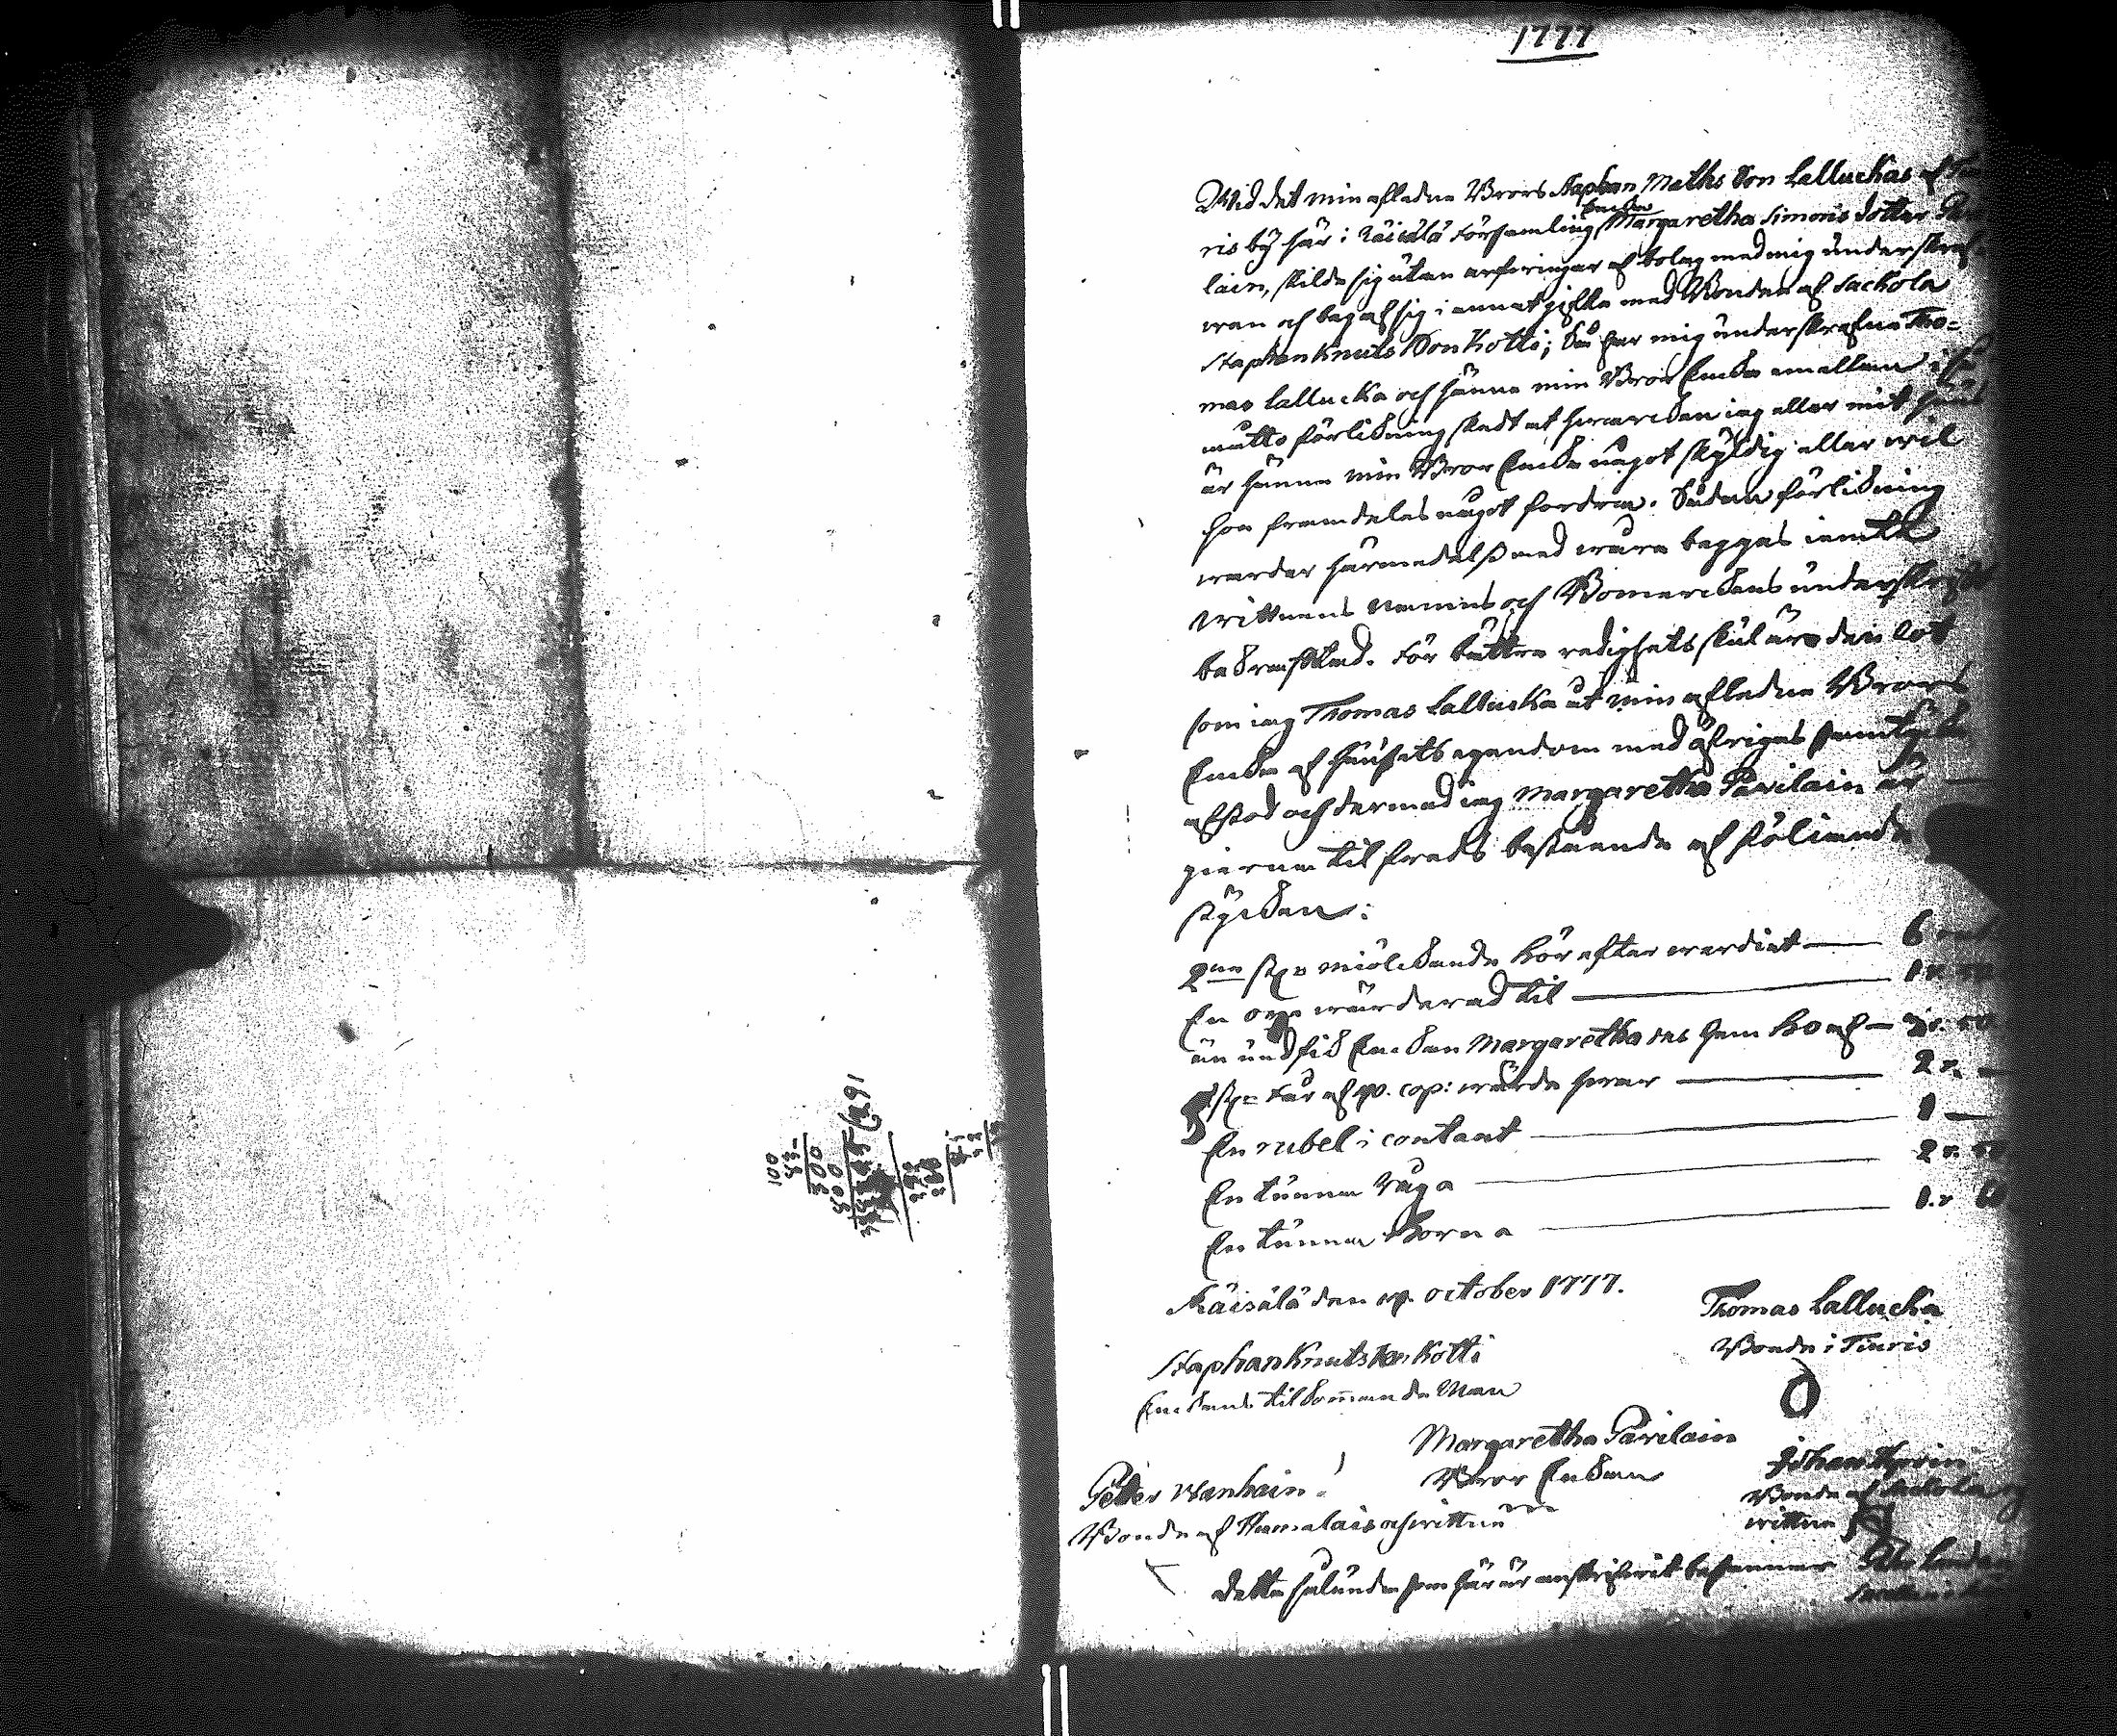 1777
Wid det min afledne Brors Staphan Maths Son Lalluckas af
ris by här i Räisälä Församling Encka Margaretha Simons dotter
lain, skilde sig utan arfvingar af bolag med mig underskref
wen och begaf sig i annat gifte med Bonden af Sackola
Staphan Knuts Son Kotti; Så har mig underskrefne Tho-
mas Lallucka och hänne min Bror Encka emellan
måtto förlickning skedt at hwarcken iag eller mit
är hänne min Bror Encka något skyldig eller wil
hon framdeles något fordra. Sådan förlickning
warder härmedelst med wåra beggas iemte
wittnens namns och Bomerckens underskrift
bekrefftad. För bättre redighets skul är den lott
som iag Thomas Lallucka åt min afledne Brors
Encka af hushets egendom med öfrigas samtycke
afstod och dermed iag Margaretha Pavilain är
gierna til freds bestående af fölliande
stycken:
2ne st. miölckande Kor efter werdiet 6
En oxe wärderad til 1 r.
än undfick Enckan Margaretha des hem ko af 3 r. 50
st. Får af 40. cop: wärde hwar 2 r.
En rubel i contant 1
En tunna Råga 2 r. 50
En tunna Korn a 1. r
Räisälä den october 1777.
Thomas Lallucka
Bonde i Tiuris
Staphan Knuts Son Kotti
Enckans tilkommande Man
Margaretha Pavilain
Bror Enckan
Petter Wanhain
Bonde af Hamalais och wittne
Johan
Bonde af Sackola
wittne
Detta sålunda som här är anskrifwit bekenner
100
300
500